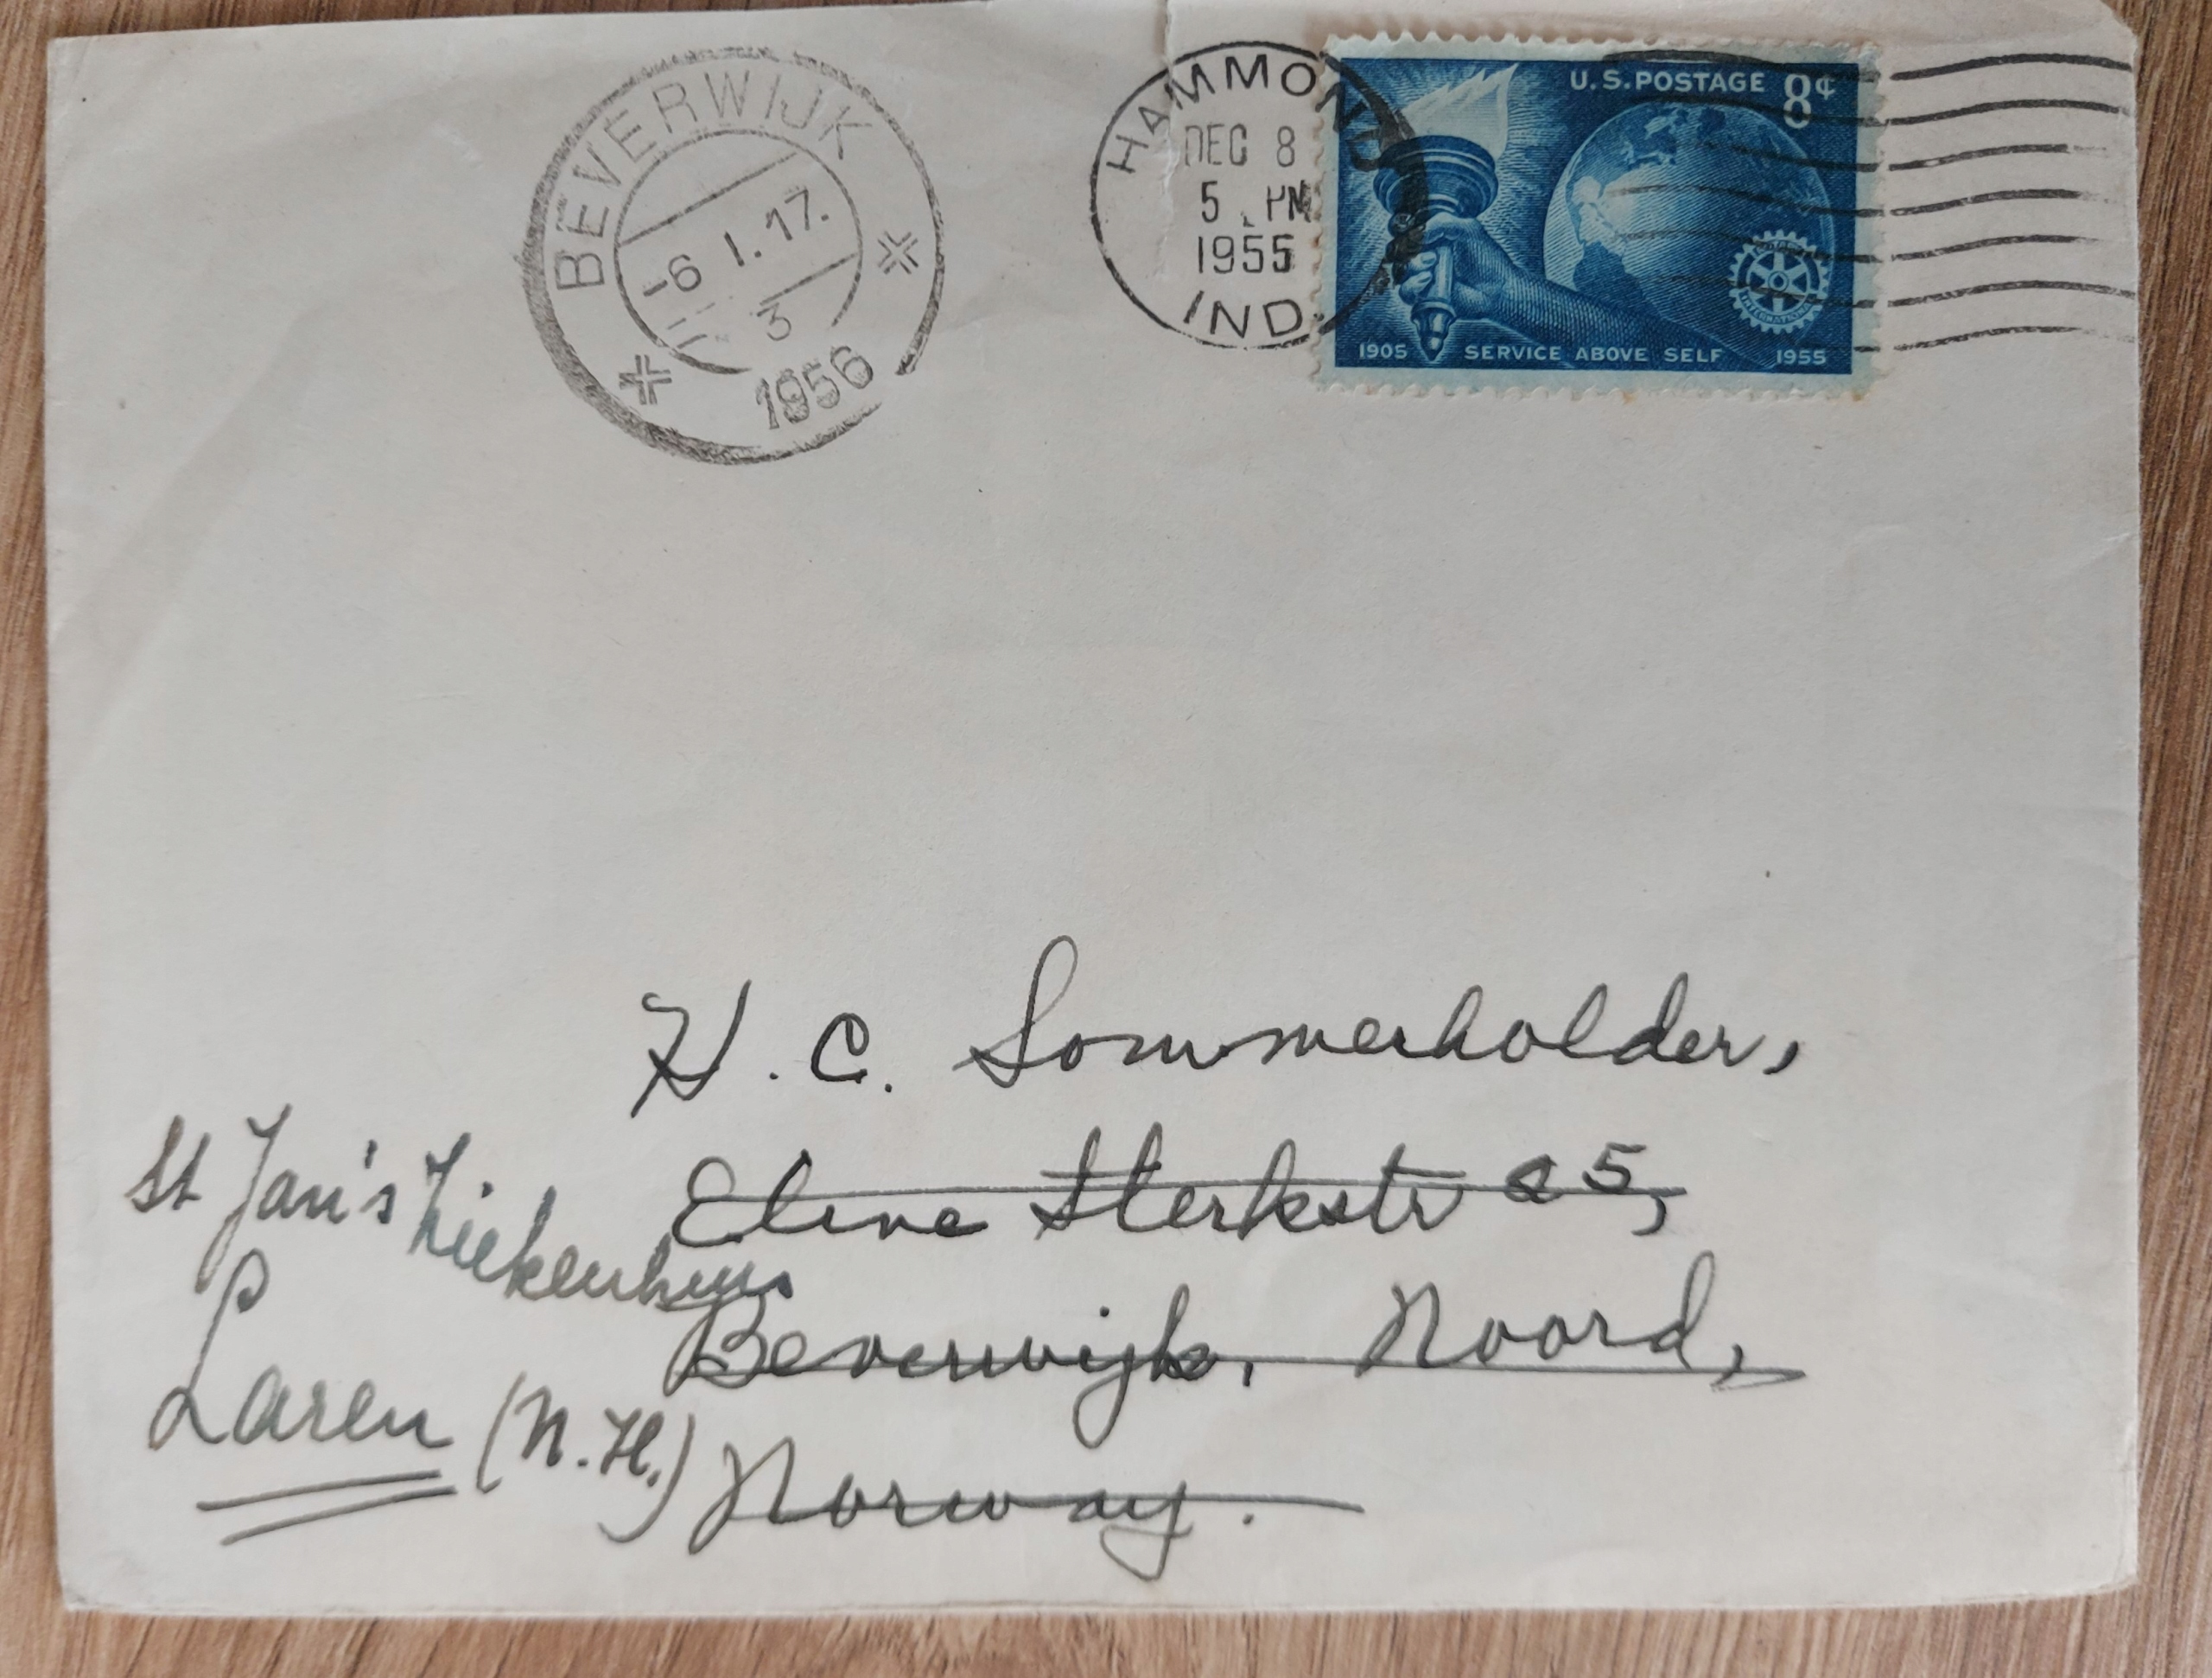 BEVERWIJK
-6 I.17.
3
1956
HAMMOND
DEC 8
5 PM
1955
IND.
U.S.POSTAGE 8¢
ROTARY
INTERNATIONAL
1905 SERVICE ABOVE SELF 1955
H. C. Sommerholder,
Eline Sterkstr 5,
Beverwijk, Noord,
Norway.
St Jan's Ziekenhuis
Laren (N.H.)